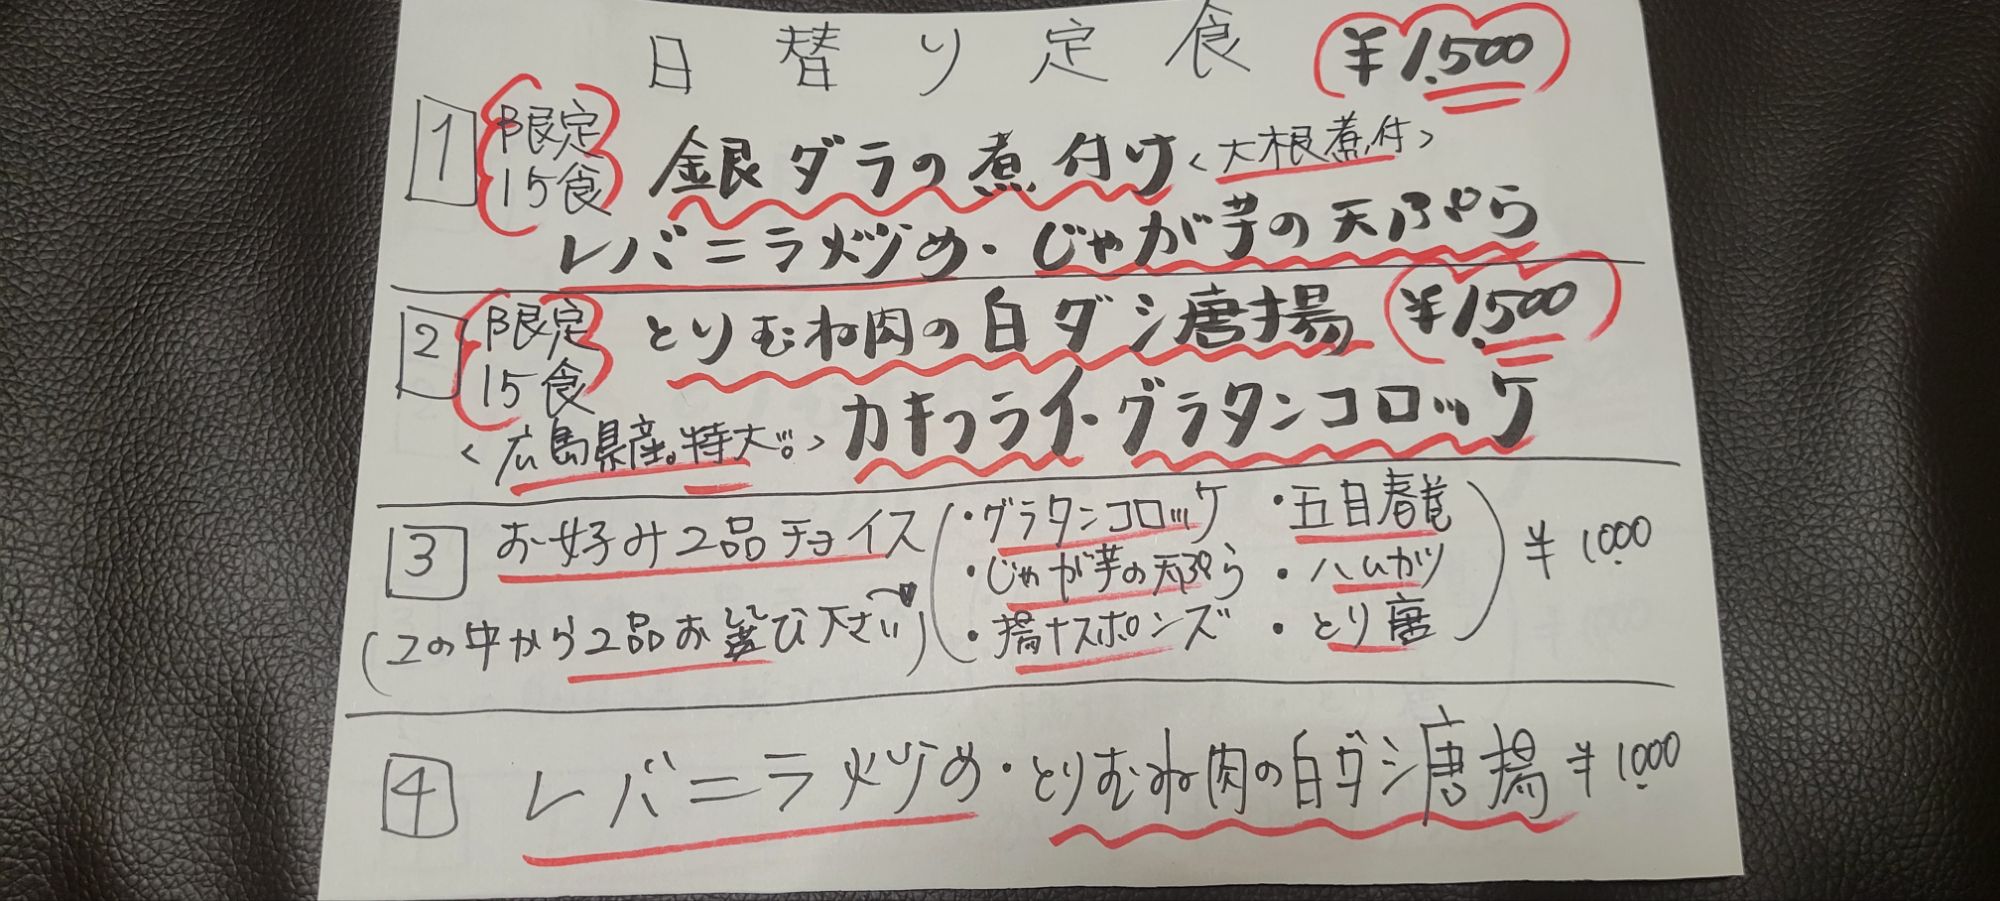 日替り定食 ¥1,500
1 限定 15食 銀ダラの煮付け <大根煮付>
レバニラ炒め・じゃが芋の天ぷら
2 限定 15食 とりむね肉の白ダシ唐揚 ¥1,500
<広島県産。特大!!。> カキフライ・グラタンコロッケ
3 お好み2品チョイス
(この中から2品お選び下さい)
・グラタンコロッケ ・五目春巻
・じゃが芋の天ぷら ・ハムカツ
・揚ナスポンズ ・とり唐
¥1,000
4 レバニラ炒め・とりむね肉の白ダシ唐揚 ¥1,000